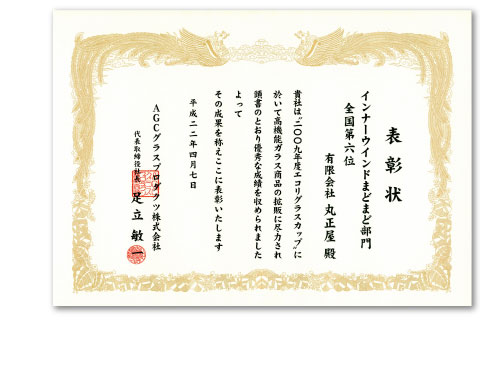 表彰状
インナーウインドまどまど部門
全国第六位
有限会社 丸正屋 殿
貴社は“二〇〇九年度エコリグラスカップ”に
於いて高機能ガラス商品の拡販に尽力され
頭書のとおり優秀な成績を収められました
よって
その成果を称えここに表彰いたします
平成二二年四月七日
AGCグラスプロダクツ株式会社
代表取締役社長 足立敏一